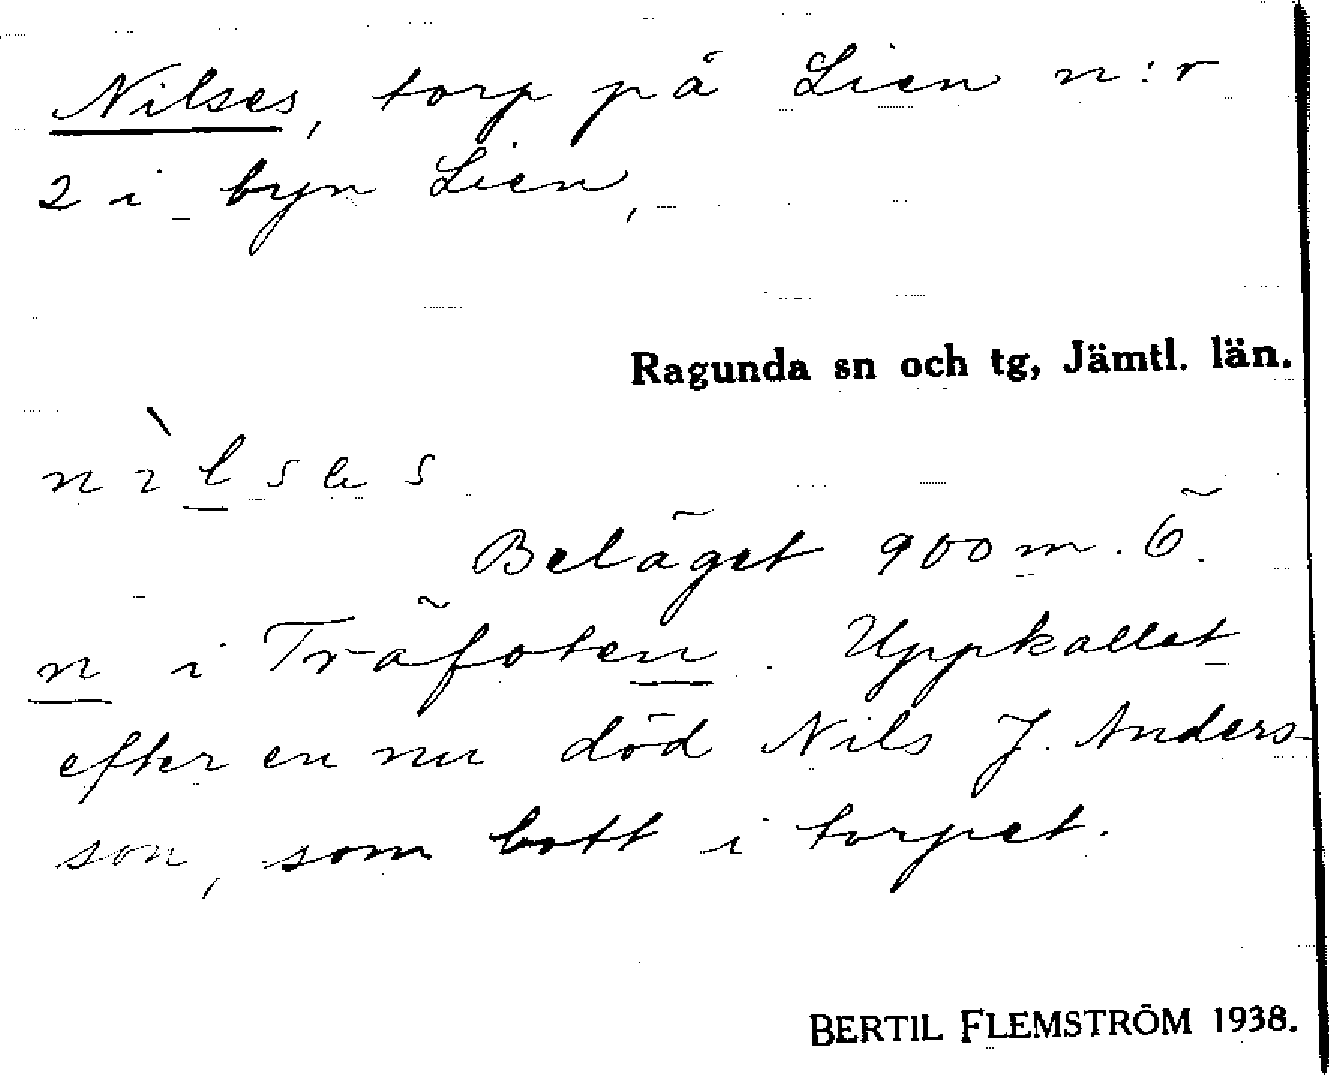 Nilses, torp på Lien n:r
2 i byn Lien,
Ragunda sn och tg, Jämtl. län.
Beläget 900 m. Ö.
n i Träfoten. Uppkallat
efter en nu död Nils J. Anders-
son, som bott i torpet.
BERTIL FLEMSTRÖM 1938.